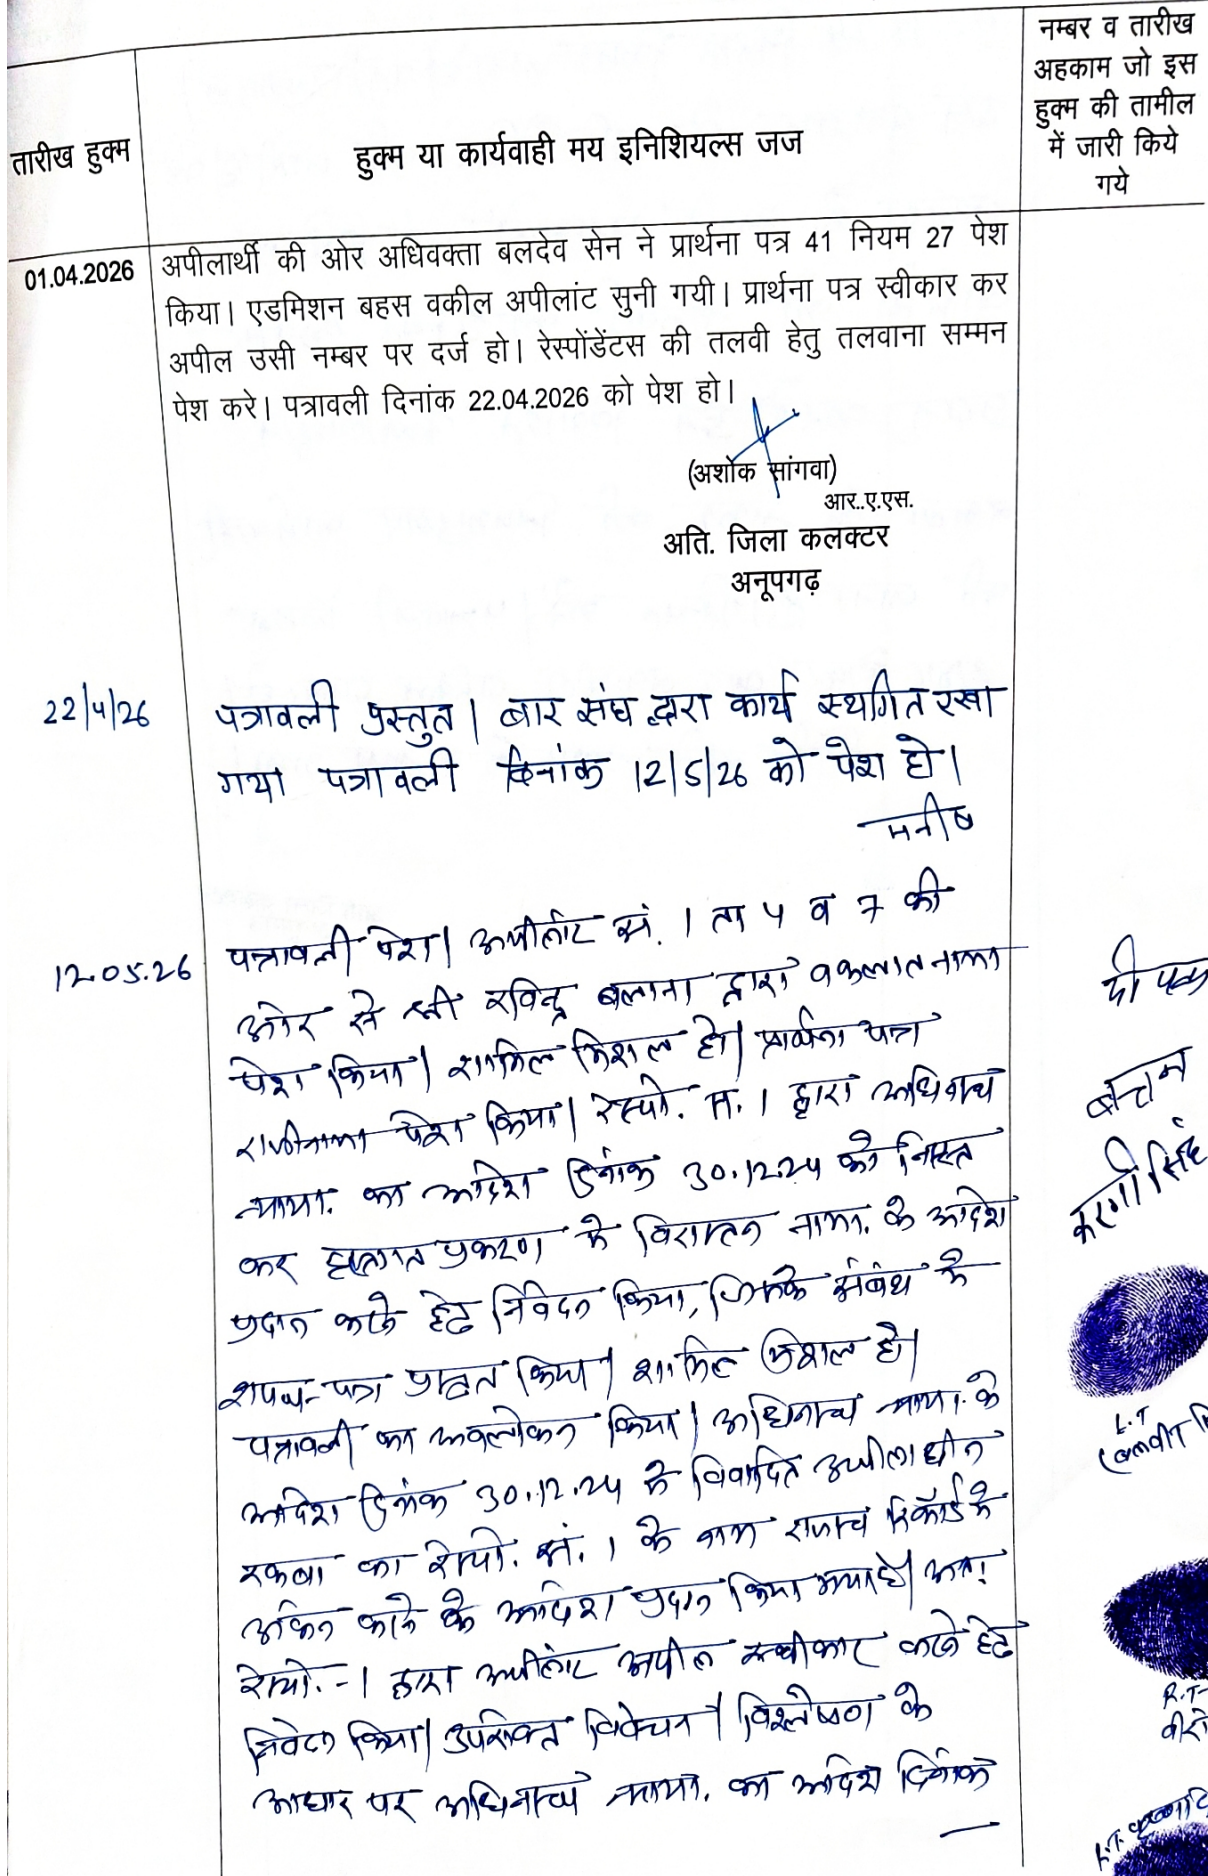 तारीख हुक्म
हुक्म या कार्यवाही मय इनिशियल्स जज
नम्बर व तारीख
अहकाम जो इस
हुक्म की तामील
में जारी किये
गये
01.04.2026
अपीलार्थी की ओर अधिवक्ता बलदेव सेन ने प्रार्थना पत्र 41 नियम 27 पेश
किया। एडमिशन बहस वकील अपीलांट सुनी गयी। प्रार्थना पत्र स्वीकार कर
अपील उसी नम्बर पर दर्ज हो। रेस्पोंडेंटस की तलवी हेतु तलवाना सम्मन
पेश करे। पत्रावली दिनांक 22.04.2026 को पेश हो।
(अशोक सांगवा)
आर..ए.एस.
अति. जिला कलक्टर
अनूपगढ़
22/4/26
पत्रावली प्रस्तुत। बार संघ द्वारा कार्य स्थगित रखा
गया पत्रावली दिनांक 12/5/26 को पेश हो।
मनीष
12.05.26
पत्रावली पेश। अपीलांट सं. 1 ता 4 व 7 की
ओर से श्री रविन्द्र बलाना द्वारा वकालतनामा
पेश किया। शामिल मिशल हो। प्रार्थना पत्र
राजीनामा पेश किया। रेस्पो. सं. 1 द्वारा अधिनस्थ
न्याया. का आदेश दिनांक 30.12.24 को निरस्त
कर प्रकरण में विरासतन नामा. के आदेश
प्रदान करने हेतु निवेदन किया, जिसके संबंध में
शपथ-पत्र प्रस्तुत किया। शामिल मिशल हो।
पत्रावली का अवलोकन किया। अधिनस्थ न्याया. के
आदेश दिनांक 30.12.24 में विवादित अपीलाधीन
रकबा का रेस्पो. सं. 1 के नाम राजस्व रिकॉर्ड में
अंकित करने के आदेश प्रदान किया गया है। अतः
रेस्पो.-1 द्वारा अपीलांट अपील स्वीकार करने हेतु
निवेदन किया। उपरोक्त विवेचन। विश्लेषण के
आधार पर अधिनस्थ न्याया. का आदेश दिनांक
बच्चन
करणी सिंह
L.T
R.T-
L.T.